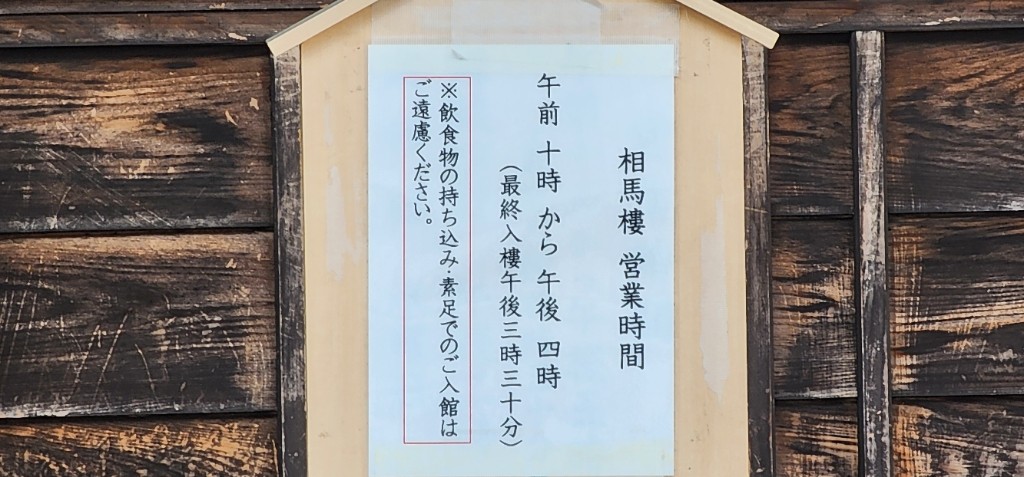 相馬樓 営業時間
午前 十時 から 午後 四時
（最終入樓午後三時三十分）
※飲食物の持ち込み・素足でのご入館は
ご遠慮ください。